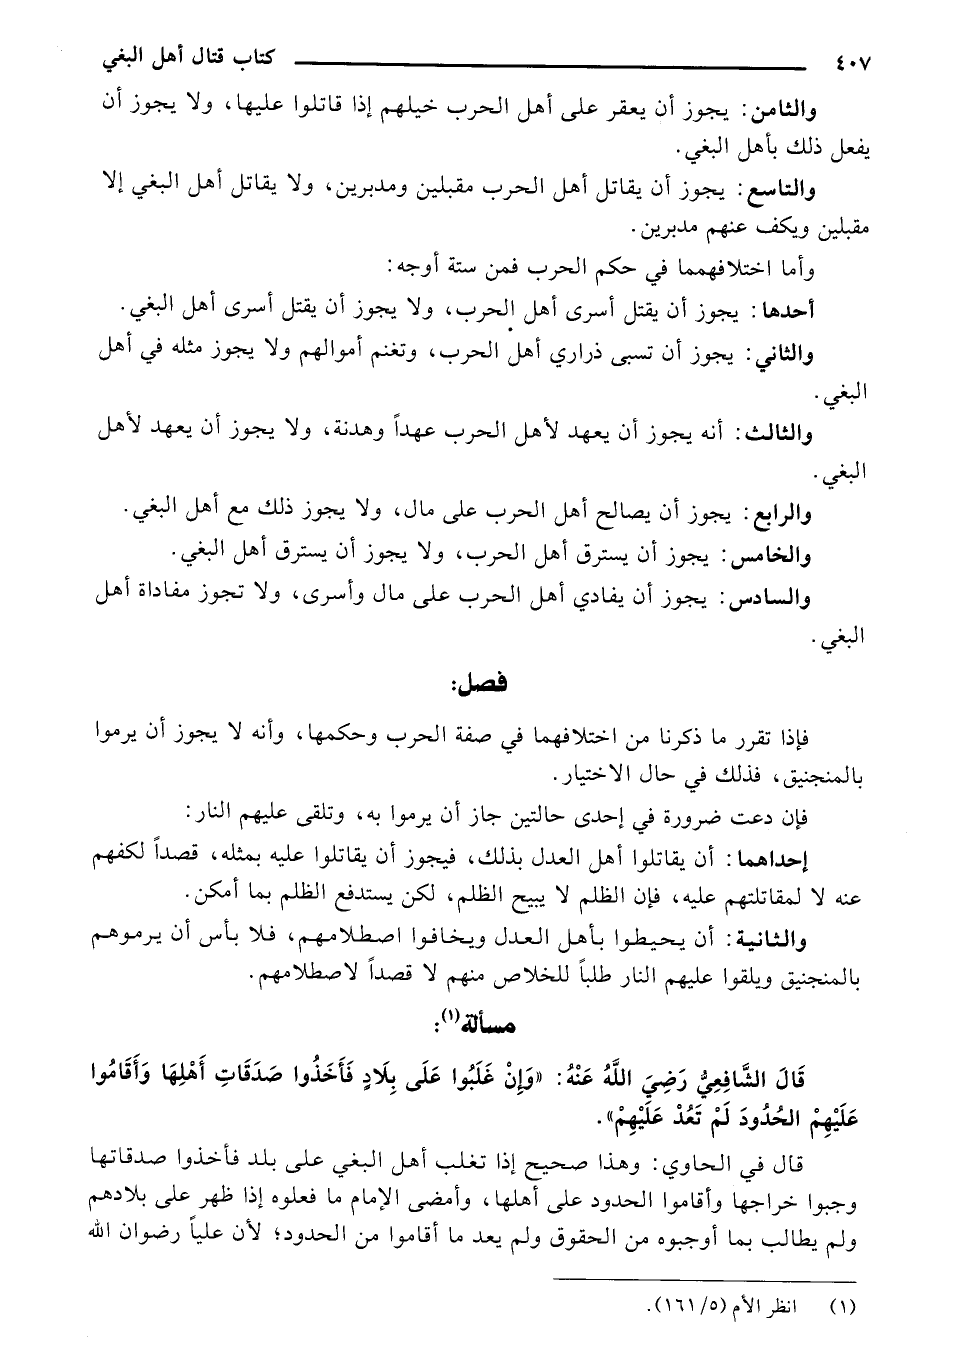 ٤٠٧ كتاب قتال أهل البغي
والثامن: يجوز أن يعقر على أهل الحرب خيلهم إذا قاتلوا عليها، ولا يجوز أن
يفعل ذلك بأهل البغي.
والتاسع: يجوز أن يقاتل أهل الحرب مقبلين ومدبرين، ولا يقاتل أهل البغي إلا
مقبلين ويكف عنهم مدبرين.
وأما اختلافهمما في حكم الحرب فمن ستة أوجه:
أحدها: يجوز أن يقتل أسرى أهل الحرب، ولا يجوز أن يقتل أسرى أهل البغي.
والثاني: يجوز أن تسبى ذراري أهل الحرب، وتغنم أموالهم ولا يجوز مثله في أهل
البغي.
والثالث: أنه يجوز أن يعهد لأهل الحرب عهداً وهدنة، ولا يجوز أن يعهد لأهل
البغي.
والرابع: يجوز أن يصالح أهل الحرب على مال، ولا يجوز ذلك مع أهل البغي.
والخامس: يجوز أن يسترق أهل الحرب، ولا يجوز أن يسترق أهل البغي.
والسادس: يجوز أن يفادي أهل الحرب على مال وأسرى، ولا تجوز مفاداة أهل
البغي.
فصل:
فإذا تقرر ما ذكرنا من اختلافهما في صفة الحرب وحكمها، وأنه لا يجوز أن يرموا
بالمنجنيق، فذلك في حال الاختيار.
فإن دعت ضرورة في إحدى حالتين جاز أن يرموا به، وتلقى عليهم النار:
إحداهما: أن يقاتلوا أهل العدل بذلك، فيجوز أن يقاتلوا عليه بمثله، قصداً لكفهم
عنه لا لمقاتلتهم عليه، فإن الظلم لا يبيح الظلم، لكن يستدفع الظلم بما أمكن.
والثانية: أن يحيطوا بأهل العدل ويخافوا اصطلامهم، فلا بأس أن يرموهم
بالمنجنيق ويلقوا عليهم النار طلباً للخلاص منهم لا قصداً لاصطلامهم.
مسألة(١):
قَالَ الشَّافِعِيُّ رَضِيَ اللَّهُ عَنْهُ: «وَإِنْ غَلَبُوا عَلَى بِلَادٍ فَأَخَذُوا صَدَقَاتِ أَهْلِهَا وَأَقَامُوا
عَلَيْهِمْ الحُدُودَ لَمْ تَعُدْ عَلَيْهِمْ».
قال في الحاوي: وهذا صحيح إذا تغلب أهل البغي على بلد فأخذوا صدقاتها
وجبوا خراجها وأقاموا الحدود على أهلها، وأمضى الإمام ما فعلوه إذا ظهر على بلادهم
ولم يطالب بما أوجبوه من الحقوق ولم يعد ما أقاموا من الحدود؛ لأن علياً رضوان الله
(١) انظر الأم (٥/ ١٦١).